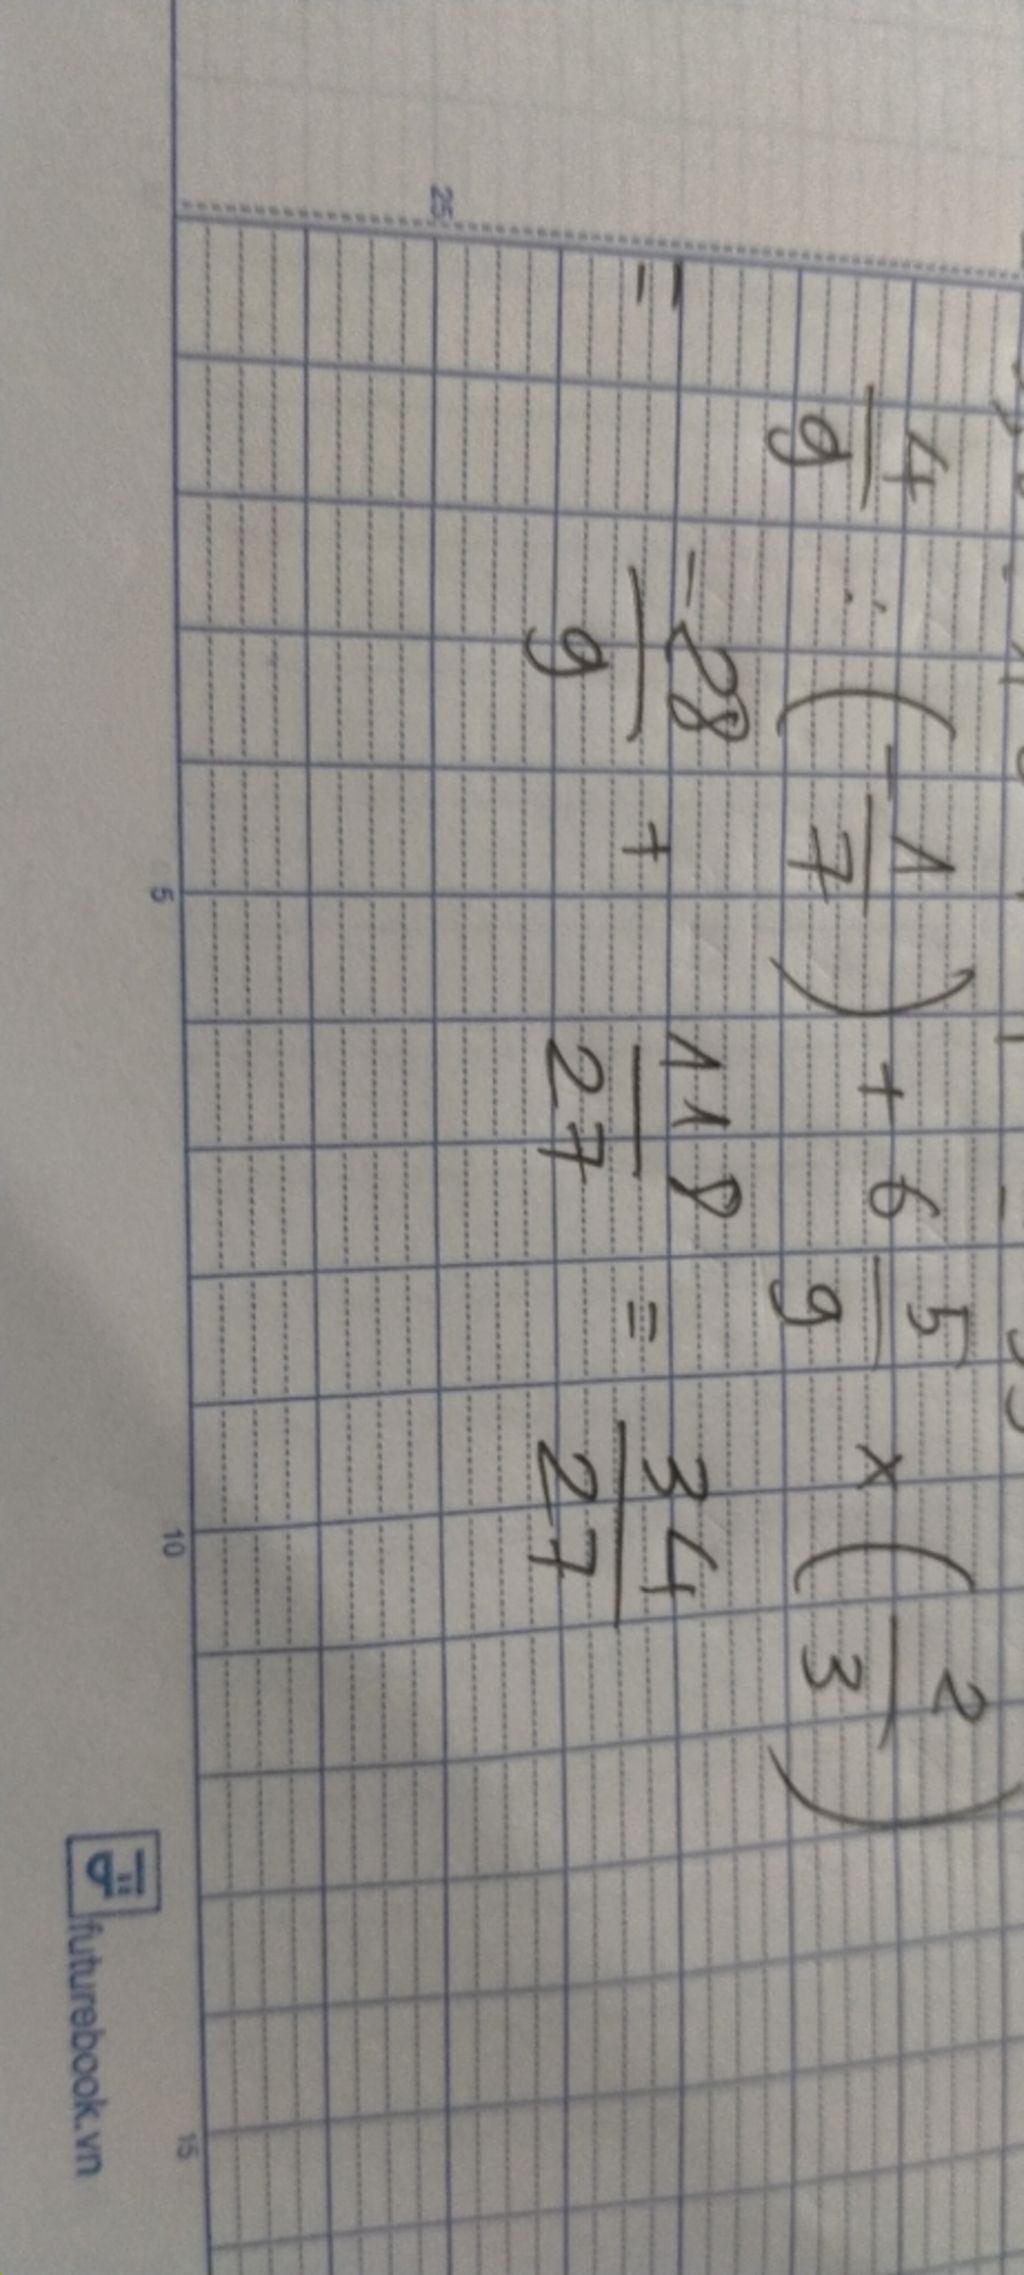 4/9 : (-1/7) + 6 5/9 × (2/3)
= -28/9 + 118/27 = 34/27
25
5
10
15
futurebook.vn